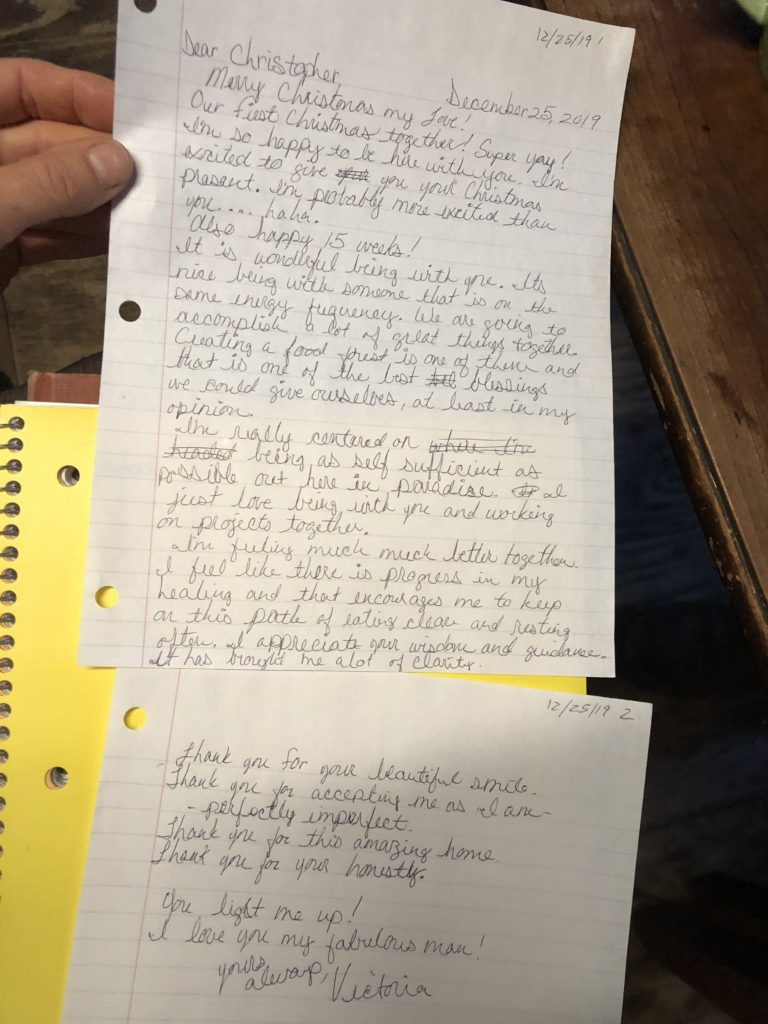 12/25/19 1
Dear Christopher,
December 25, 2019
Merry Christmas my Love!
Our first Christmas together! Super yay!
I'm so happy to be here with you. I'm
excited to give you your Christmas
present. I'm probably more excited than
you..... haha.
Also happy 15 weeks!
It is wonderful being with you. Its
nice being with someone that is on the
same energy fuquency. We are going to
accomplish a lot of great things together.
Creating a food forest is one of them and
that is one of the best blessings
we could give ourselves, at least in my
opinion.
I'm really centered on where I'm
headed being as self sufficient as
possible out here in paradise. I
just love being with you and working
on projects together.
I'm feeling much much better together.
I feel like there is progress in my
healing and that encourages me to keep
on this path of eating clean and resting
often. I appreciate your wisdom and guidance.
It has brought me alot of clarity.
12/25/19 2
Thank you for your beautiful smile.
Thank you for accepting me as I am-
- perfectly imperfect.
Thank you for this amazing home.
Thank you for your honesty.
You light me up!
I love you my fabulous man!
yours
always,
Victoria